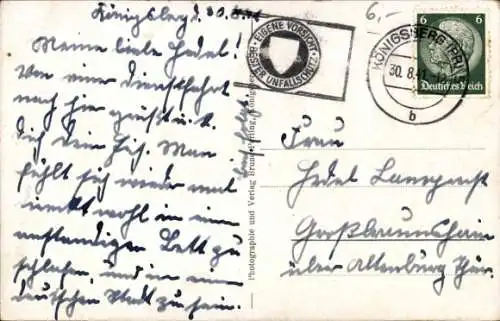 Königsberg d. 30.8.41
Meine liebe Hedel!
Von einer Dienstfahrt
nach hier grüßt
dich dein Man
fühlt sich wieder mal
recht wohl in einem
anständigen Bett zu
schlafen, und in einer
deutschen Stadt zu sein.
Photographie und Verlag Bruno Perling, Königsberg
EIGENE VORSICHT
BESTER UNFALLSCHUTZ
KÖNIGSBERG (PR)
30.8.41
b
6
6
Deutsches Reich
6,-
Frau
Hedel
Großbraunshain
über Altenburg Thür.